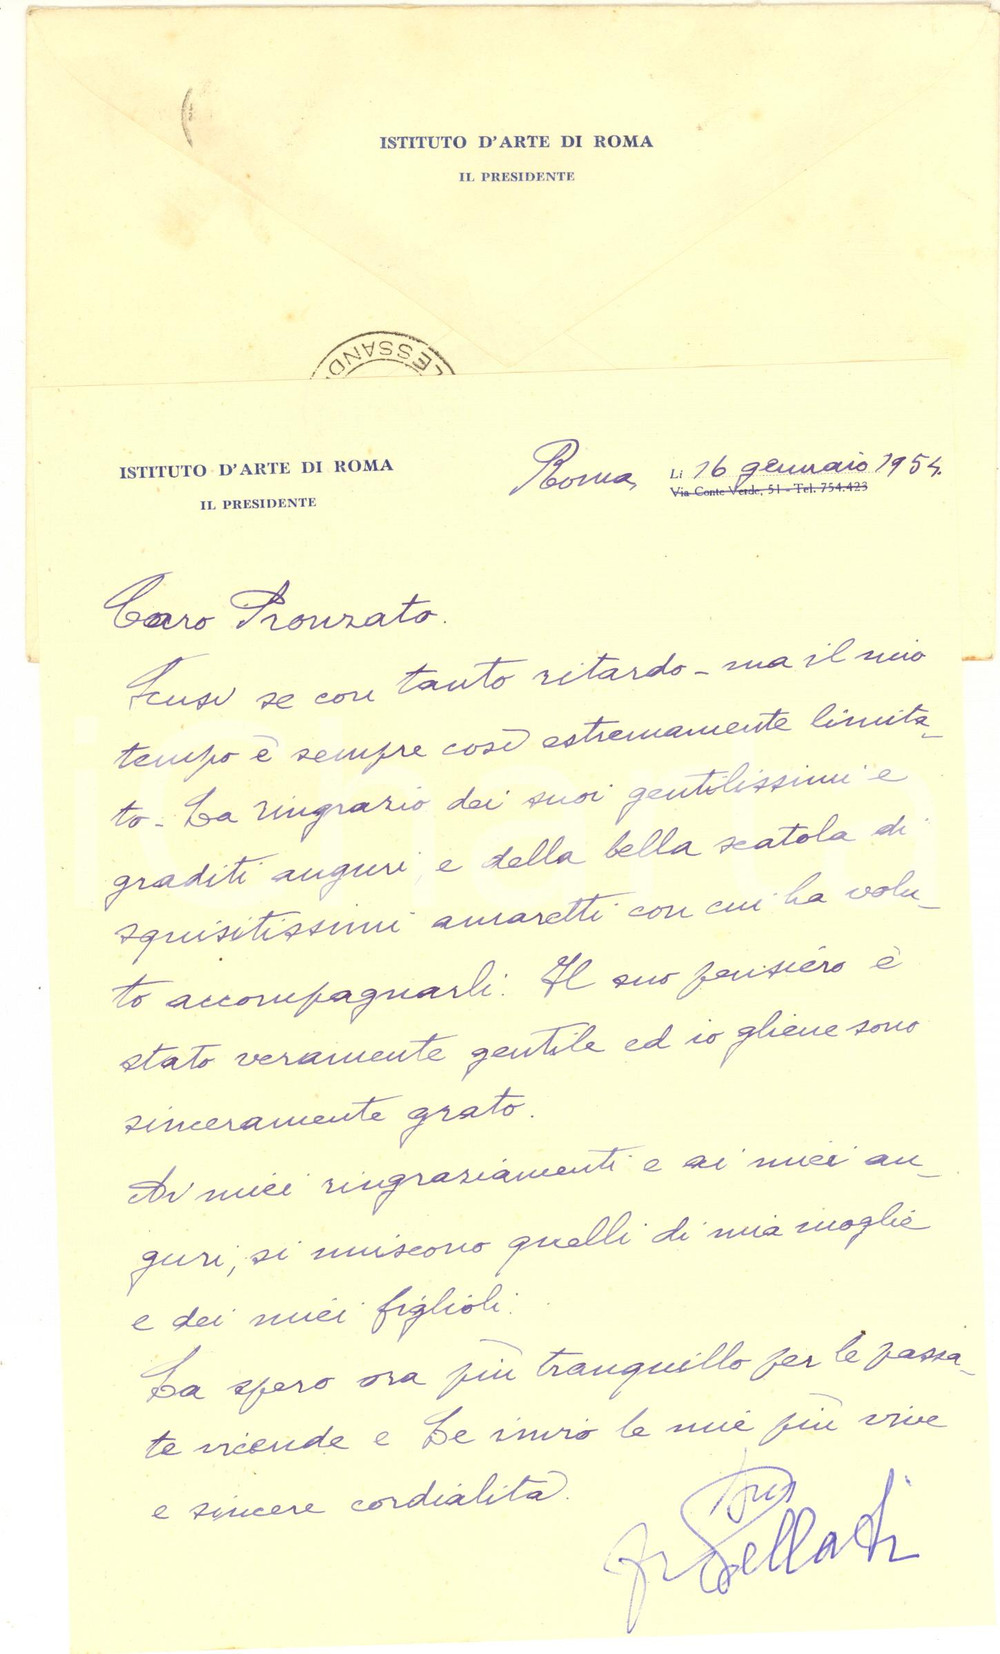 ISTITUTO D'ARTE DI ROMA
IL PRESIDENTE
ESSAND
ISTITUTO D'ARTE DI ROMA
IL PRESIDENTE
Roma, Lì 16 gennaio 1954.
Via Conte Verde, 51 - Tel. 754.423
Caro Pronzato.
Scusi se con tanto ritardo - ma il mio
tempo è sempre così estremamente limita-
to - La ringrazio dei suoi gentilissimi e
graditi auguri, e della bella scatola di
squisitissimi amaretti con cui ha volu-
to accompagnarli. Il suo pensiero è
stato veramente gentile ed io gliene sono
sinceramente grato.
Ai miei ringraziamenti e ai miei au-
guri, si uniscono quelli di mia moglie
e dei miei figlioli.
La spero ora più tranquillo per le passa-
te vicende e Le invio le mie più vive
e sincere cordialità.
Suo
Fr Pellati